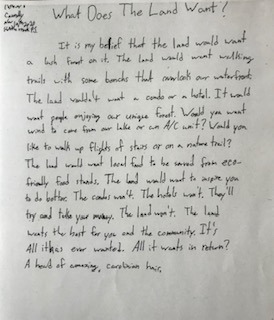 What Does The Land Want?
It is my belief that the land would want
a lush forest on it. The land would want walking
trails with some benchs that overlook our waterfront.
The land wouldn't want a condo or a hotel. It would
want people enjoying our unique forest. Would you want
wind to come from our lake or an A/C unit? Would you
like to walk up flights of stairs or on a nature trail?
The land would want local food to be served from eco-
friendly food stands. The land would want to inspire you
to do better. The condos won't. The hotels won't. They'll
try and take your money. The land won't. The land
wants the best for you and the community. It's
All it has ever wanted. All it wants in return?
A head of amazing, hair.